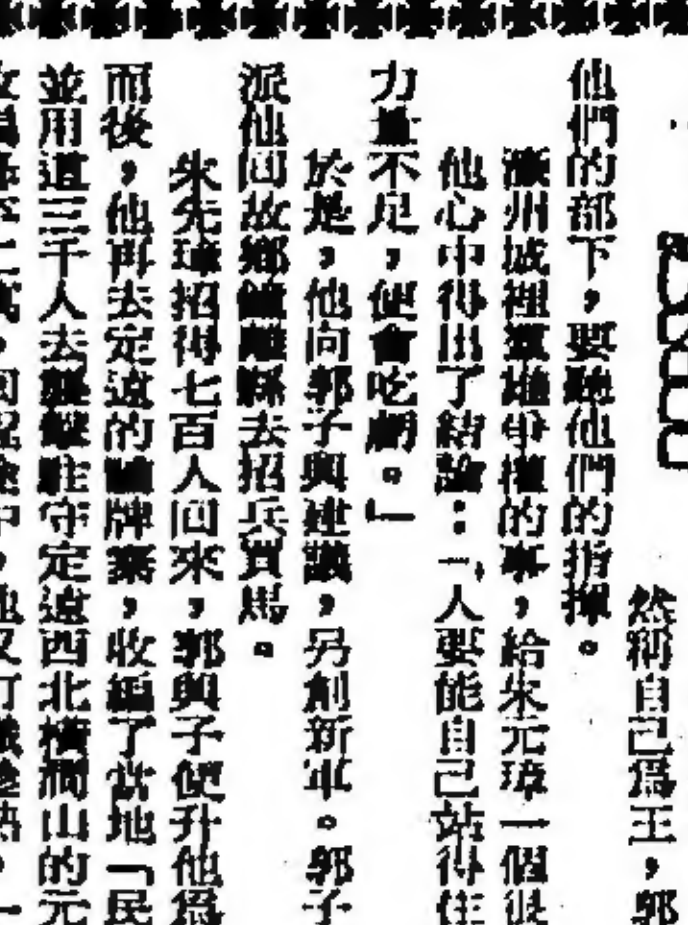 然稱自己為王，郭
他們的部下，要聽他們的指揮。
濠州城裡羣雄爭權的事，給朱元璋一個很
他心中得出了結論：「人要能自己站得住
力量不足，便會吃虧。」
於是，他向郭子興建議，另創新軍。郭子
派他回故鄉鍾離縣去招兵買馬。
朱先璋招得七百人回來，郭興子便升他爲
而後，他再去定遠的驢牌寨，收編了當地「民
並用這三千人去襲擊駐守定遠西北橫澗山的元